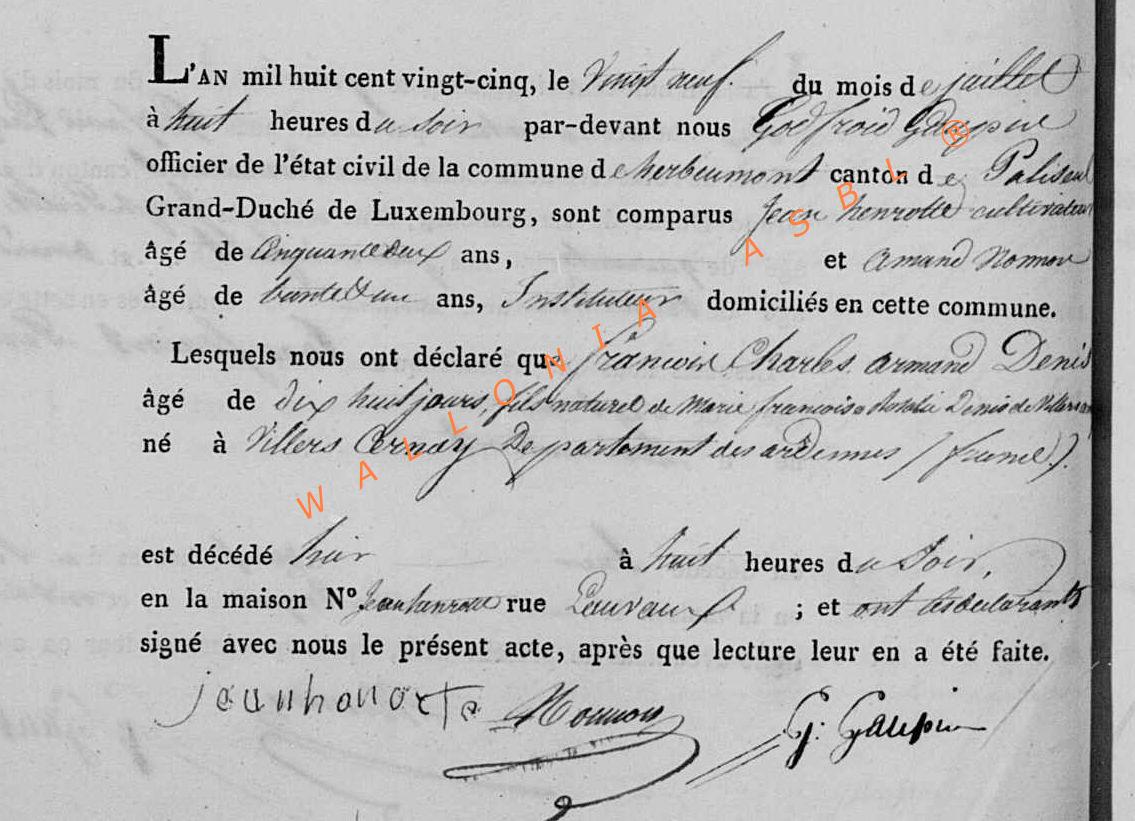 L'AN mil huit cent vingt-cinq, le Vingt neuf du mois de juillet
à huit heures du soir par-devant nous Godfroid Gaupin
officier de l'état civil de la commune de herbeumont canton de Paliseul
Grand-Duché de Luxembourg, sont comparus Jean henrotte cultivateur
âgé de Cinquantedeux ans, et Amand
âgé de trenteun ans, Instituteur domiciliés en cette commune.
Lesquels nous ont déclaré que francois Charles armand Denis
âgé de dix huit jours, fils naturel de Marie francoise Denis de Villers
né à Villers Cernay Departement des ardennes (france).
est décédé hier à huit heures du Soir,
en la maison N° Jean henrotte rue ; et ont les declarants
signé avec nous le présent acte, après que lecture leur en a été faite.
G. Gaupin
WALLONIA ASBL ®